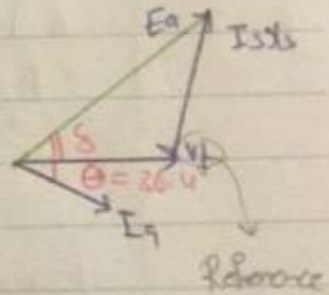 Ea
IsXs
δ
Vφ
θ = 26.4
Ia
Reference